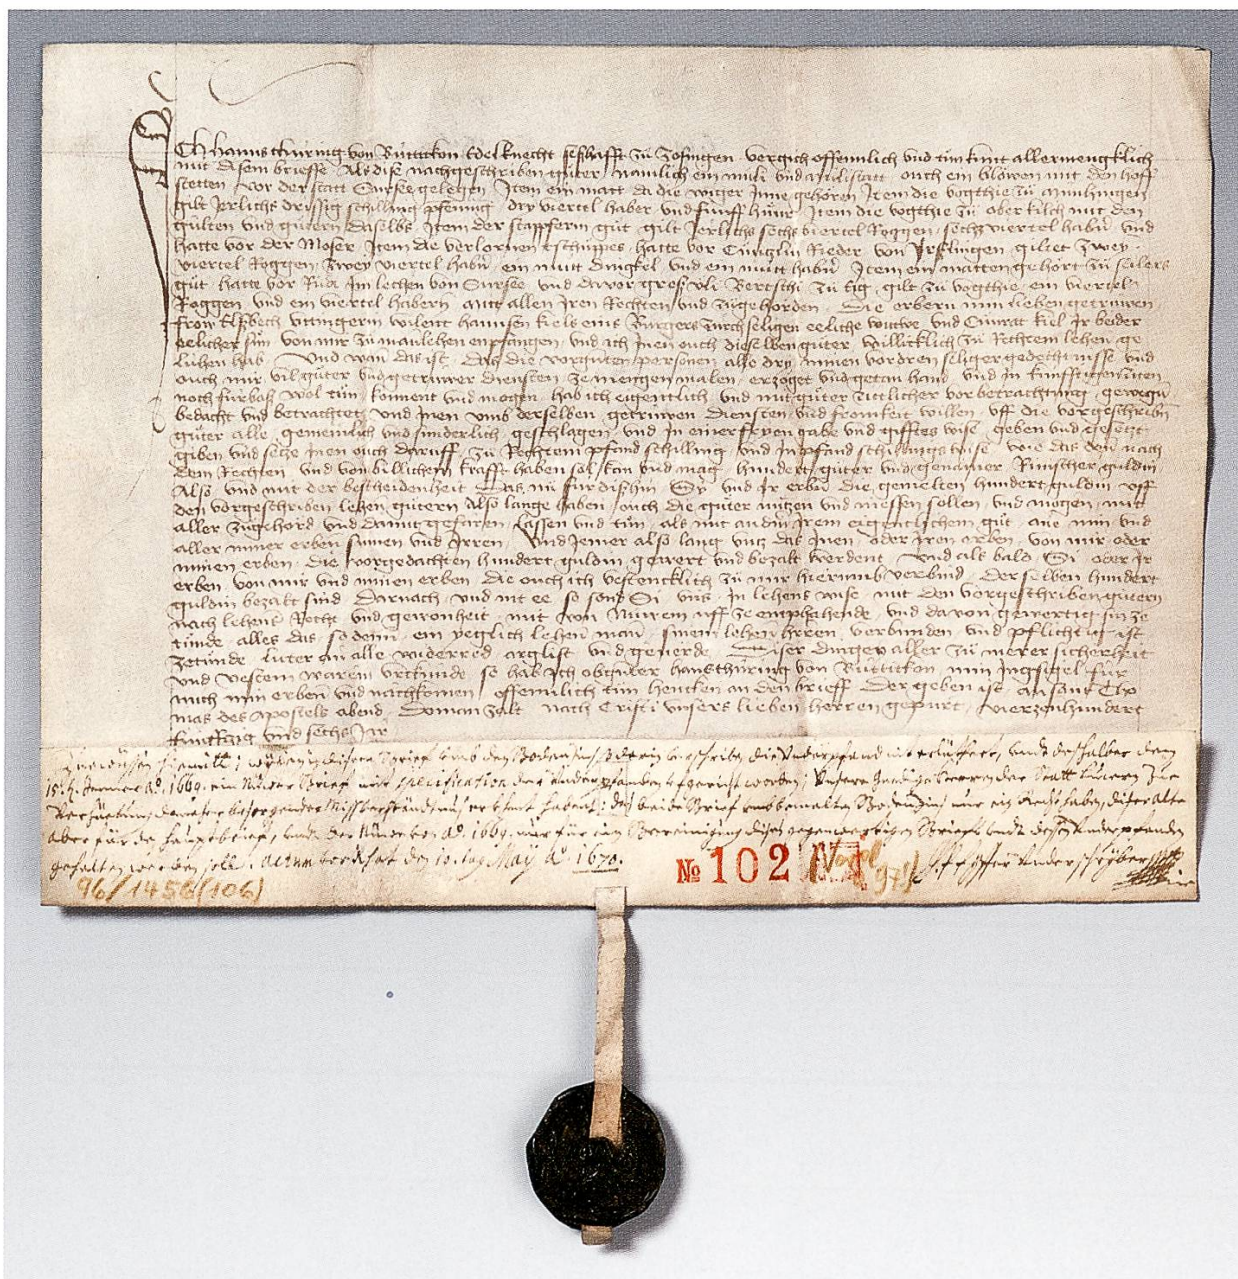 Ich Hanns thüring von Büttikon Edelknecht seßhafft zů Zofingen vergich offennlich vnd tůn kunt allermengklich
mit disem brieffe Als diß nachgeschriben gůter namlich ein můli vnd mülistatt ouch ein blöwen mit den hoff
stetten vor der statt Sursee gelegen Item ein matt da die wiger Inne gehören Item die vogthie zů
gilt Jerlichs drissig schilling pfenning drü viertel haber vnd fünff hůnr Item die vogthie zů oberkilch mit den
gülten vnd gůtern daselbs Item der stapfferin gůt gilt Jerlichs sechs viertel Roggen sechs viertel habern vnd
hatte vor der Moser Item die verlornen tschůppes hatte vor Cůntzlin Rieder von giltet zwey
viertel Roggen zwey viertel habern ein mütt dingkel vnd ein mütt habern Item ein matten gehört zů seilers
gůt hatte vor Růdi Im lechen von Sursee vnd davor groß vli Bertschi zů Eig gilt zů vogthie ein viertel
Roggen vnd ein viertel habern mitt allen Iren Rechten vnd zůgehörden Die erbern min lieben getrüwen
frow Elßbeth wilent hannsen kiels eins Burgers Zürch seligen eeliche wittwe vnd Cůnratt kiel Ir beider
eelicher sůn von mir zů manlehen enpfangen vnd ich Inen ouch dieselben gůter williklich zů Rechtem lehen ge
lühen hab Vnd wan das ist das die vorgnten personen alle dry minen vordren seliger gedechtnisse vnd
ouch mir vil gůter vnd getruwer diensten ze mengen malen erzöget vnd getan hand vnd In künfftigen ziten
noch fürbaß wol tůn koment vnd mogen hab ich eigentlich vnd mit gůter zittlicher vorbetrachtung gewegen
bedacht vnd betrachtet vnd Inen vmb derselben getrüwen diensten vnd fromkeit willen vff die vorgeschribnen
gůter alle gemeinlich vnd sunderlich geschlagen vnd In einer fryen gabe vnd gifftes wise geben vnd gesetzt
giben vnd setze Inen ouch daruff zů Rechtem pfand schilling vnd In pfand schillings wise wie das denn nach
dem Rechten vnd von billichem krafft haben sol kan vnd mag hundert gůter vnd genämer Rinischer guldin
Also vnd mit der bescheidenheit das nu fürdißhin Sy vnd Ir erben die gemelten hundert guldin vff
den vorgeschriben lehen gůtern Also lange haben ouch die gůter nutzen vnd niessen sollen vnd mogen mit
aller zůgehörd vnd damit gefaren lassen vnd tůn als mit andrm Irem eigentlichem gůt ane min vnd
aller miner erben sumen vnd Irren Vnd Iemer also lang vntz das Inen oder Iren erben von mir oder
minen erben die vorgedachten hundert guldin gewert vnd bezalt werdent Vnd als bald Si oder Ir
erben von mir vnd minen erben die ouch ich vestencklich zů mir hierumb verbind derselben hundert
guldin bezalt sind Darnach vnd nit ee so sond Si vns In lehens wise mit den vorgeschriben gůtern
nach lehens Recht vnd gewonheit mit von Nüwem vff ze emphahende vnd davon gewertig sin ze
tůnde alles das so denn ein yeglich lehen man sinem lehen herren verbunden vnd pflichtig ist
zetůnde luter an alle widerred arglist vnd geuerde Diser dinger aller zů merer sicherheit
vnd vestem warem vrkunde so hab Ich obgnter hansthüring von Büttikon min Ingsigel für
mich min erben vnd nachkomen offennlich tůn hencken an den brieff Der geben ist an sant Tho
mas des apostels abend Do man zalt nach Cristi vnsers lieben herren gepurt vierzenhundert
fünffzig vnd sechs Jar
Zue wüssen hiemitt; wylen in disem Brieff umb den Bodenzins die Underpfand nit erlüteret, undt desshalber dem
15. Jenner Aº. 1669. ein Nüwer Brieff mit specification der Underpfanden uffgericht worden; Unsere Gnädige Herren der Statt Lucern zue
haben; das beide Brieff umb Bodenzins nur ein haben, diser alte
aber für den Hauptbrieff, undt der Nüwe von Aº. 1669. nur für ein Bereinigung disers gegenwertigen Brieffs undt dessen Underpfanden
gehalten werden solle. Actum den 10. tag May Aº. 1670.
96/1456(106)
Nº 102
97
Underschryber